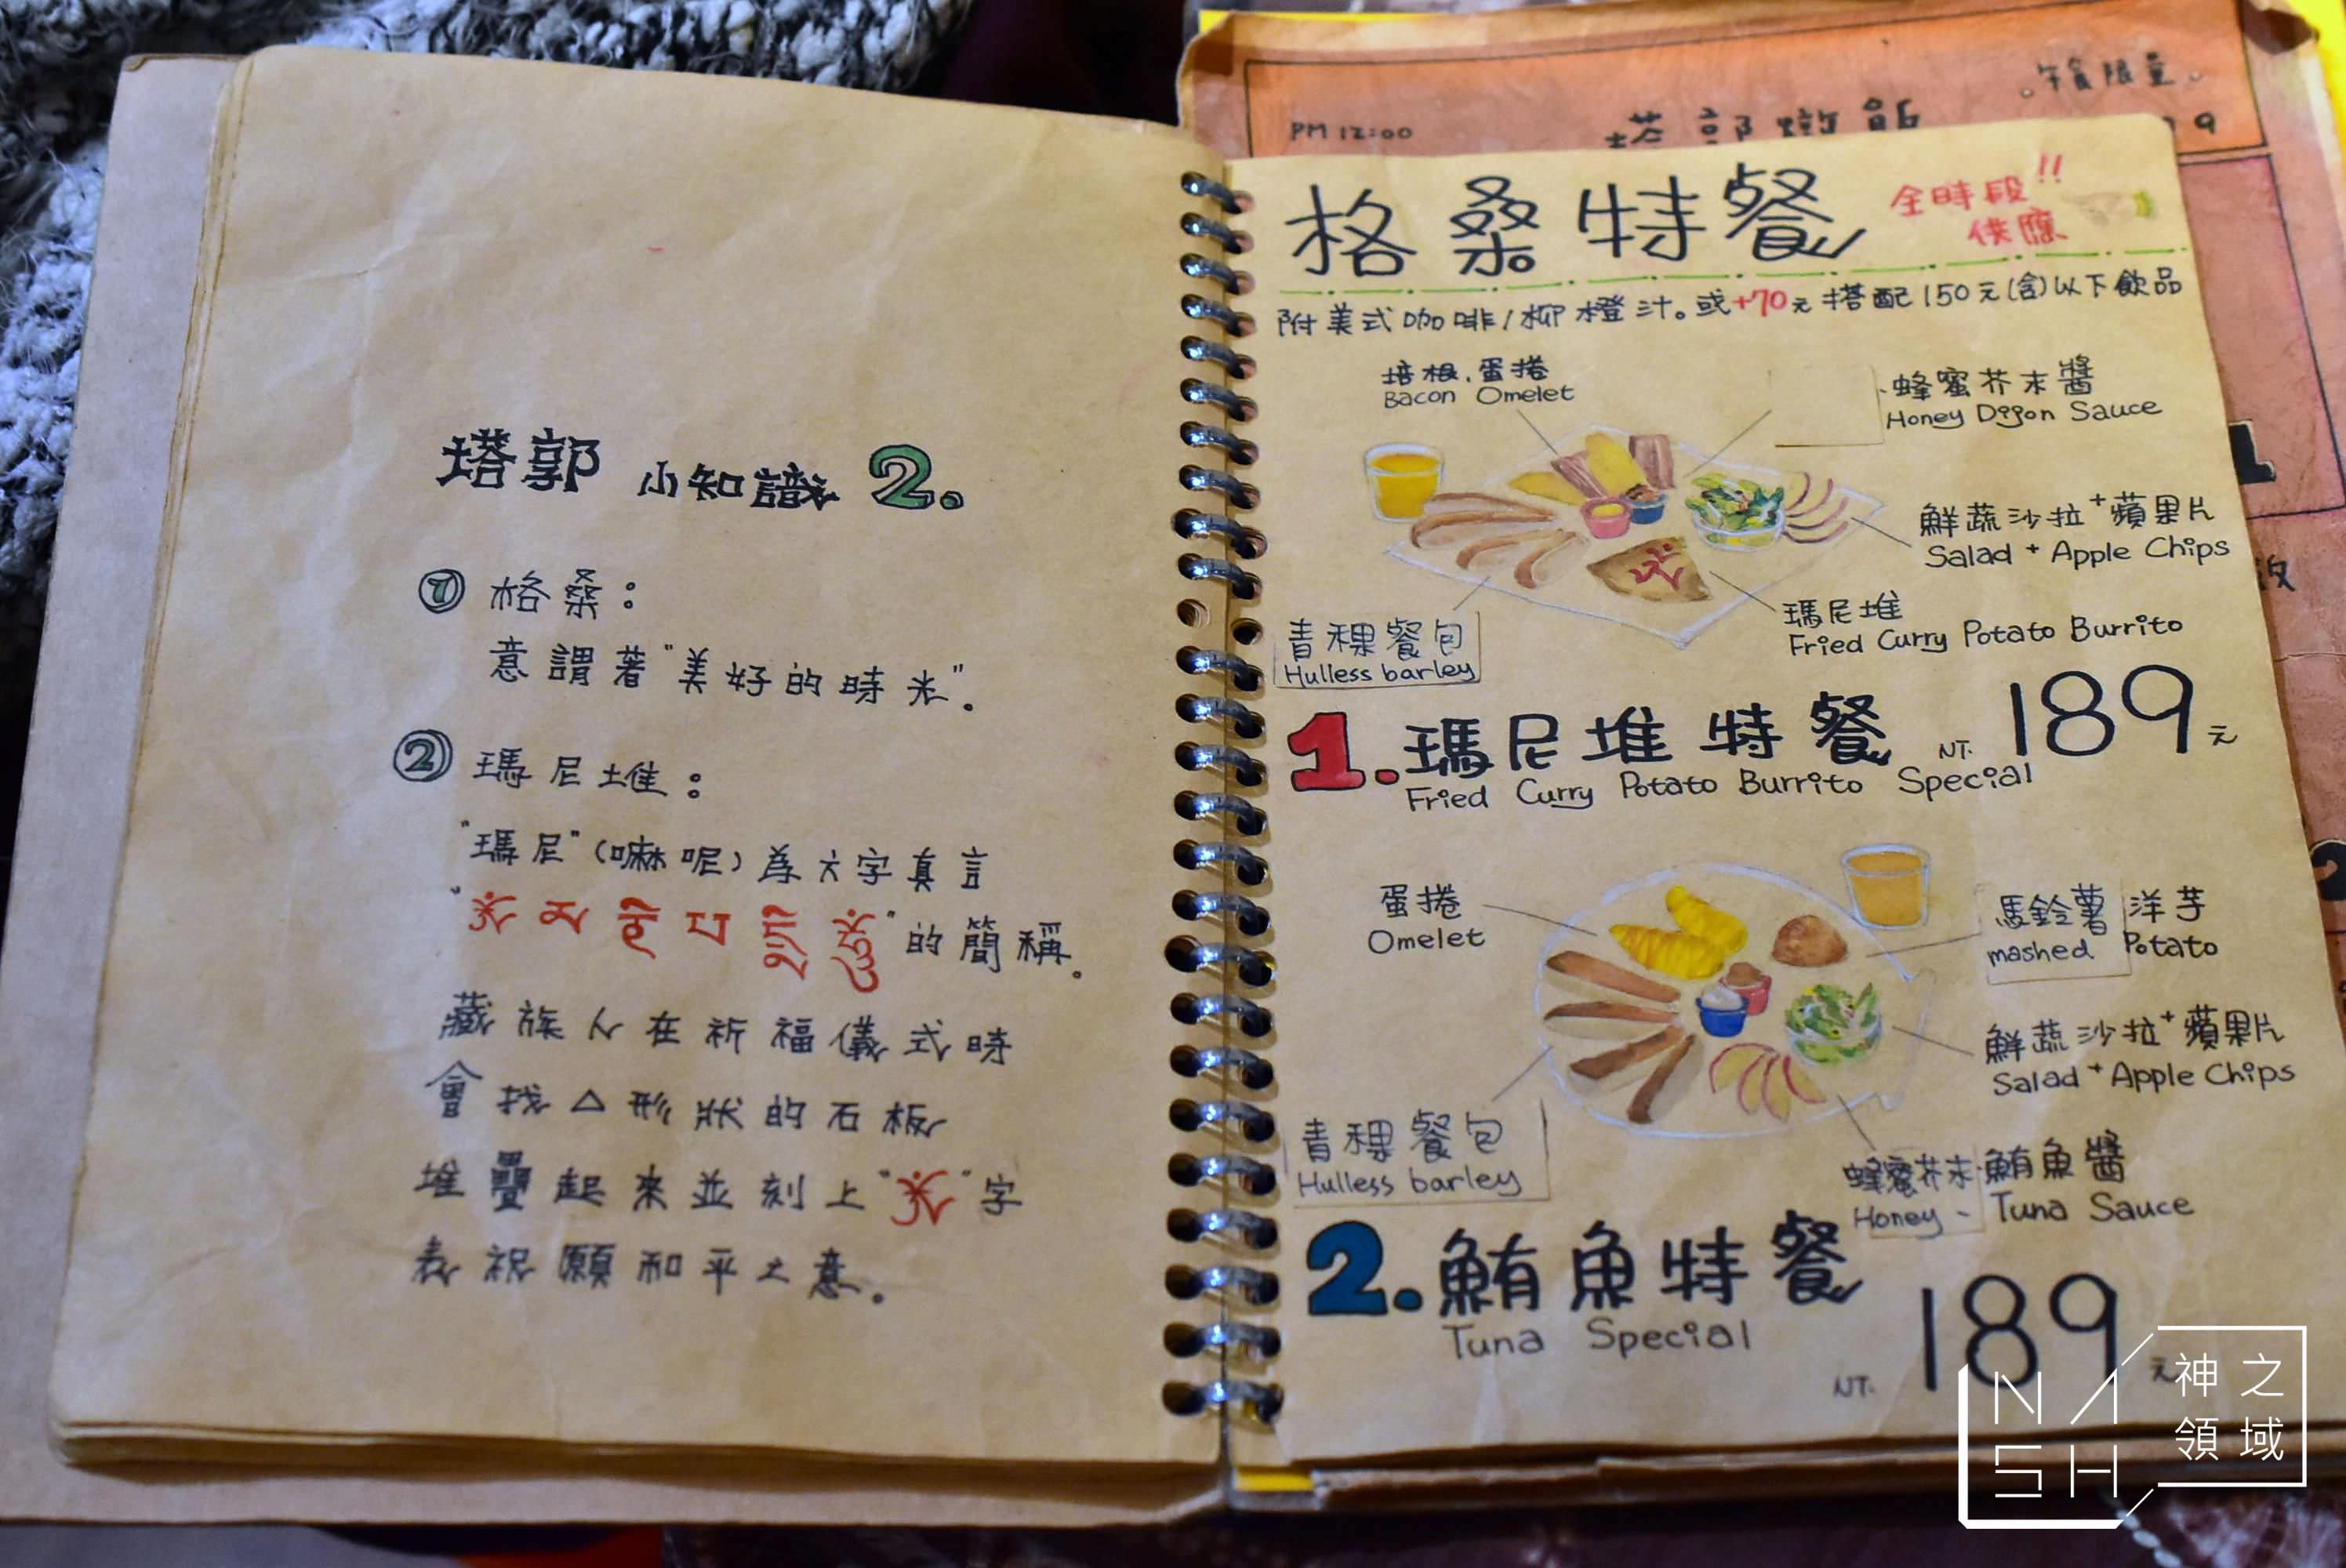 塔郭 小知識 2.
① 格桑：
意謂著"美好的時光"。
② 瑪尼堆：
"瑪尼"(嘛呢)為六字真言
"ༀ མ ཎི པ དྨེ ཧཱུྃ"的簡稱。
藏族人在祈福儀式時
會找△形狀的石板
堆疊起來並刻上"ༀ"字
表祝願和平之意。
午食限量。
PM 12:00 塔郭燉飯 9
格桑特餐 全時段!!
供應
附美式咖啡/柳橙汁。或+70元搭配150元(含)以下飲品
培根.蛋捲
Bacon Omelet
蜂蜜芥末醬
Honey Dijon Sauce
鮮蔬沙拉+蘋果片
Salad + Apple Chips
瑪尼堆
Fried Curry Potato Burrito
青稞餐包
Hulless barley
1.瑪尼堆特餐 NT. 189元
Fried Curry Potato Burrito Special
蛋捲
Omelet
馬鈴薯洋芋
mashed Potato
鮮蔬沙拉+蘋果片
Salad + Apple Chips
青稞餐包
Hulless barley
蜂蜜芥末.鮪魚醬
Honey - Tuna Sauce
2.鮪魚特餐
Tuna Special
NT. 189元
NASH 神之領域